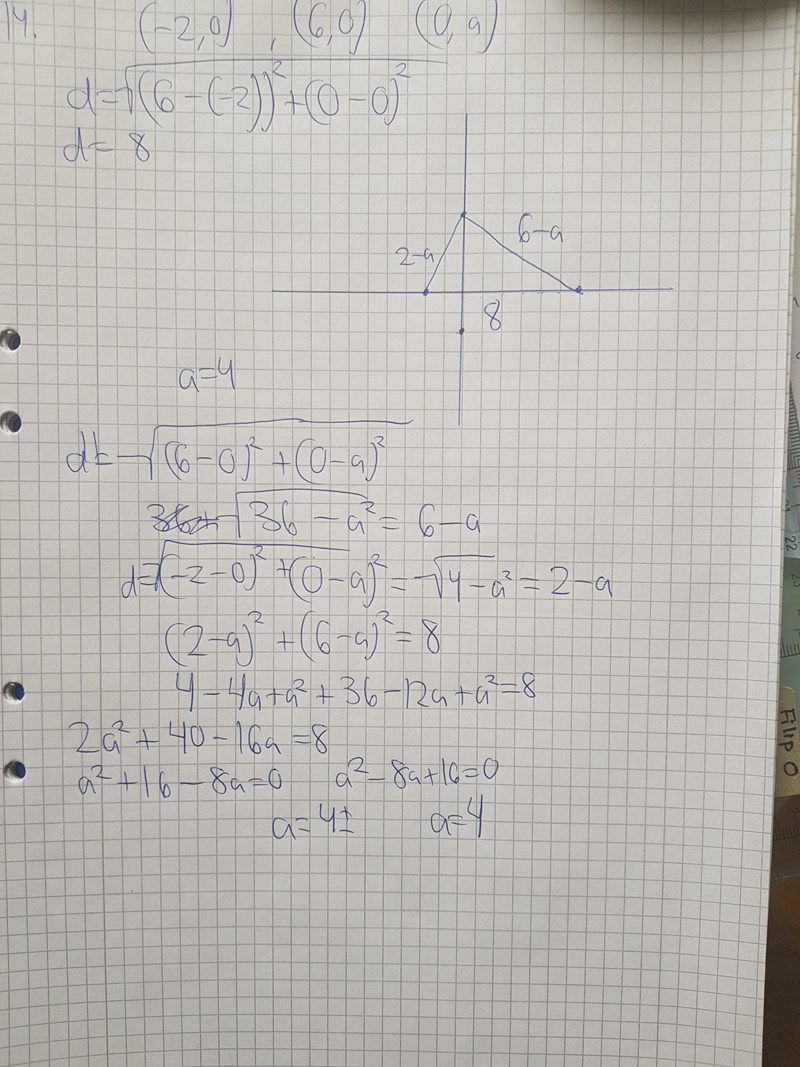 14. (-2,0), (6,0) (0,a)
d=√(6-(-2))²+(0-0)²
d= 8
2-a
6-a
8
a=4
d= √(6-0)²+(0-a)²
36+ √36-a² = 6-a
d=√(-2-0)²+(0-a)² = √4-a² = 2-a
(2-a)²+(6-a)²=8
4-4a+a²+36-12a+a²=8
2a²+40-16a=8
a²+16-8a=0 a²-8a+16=0
a=4± a=4
22
Filip O